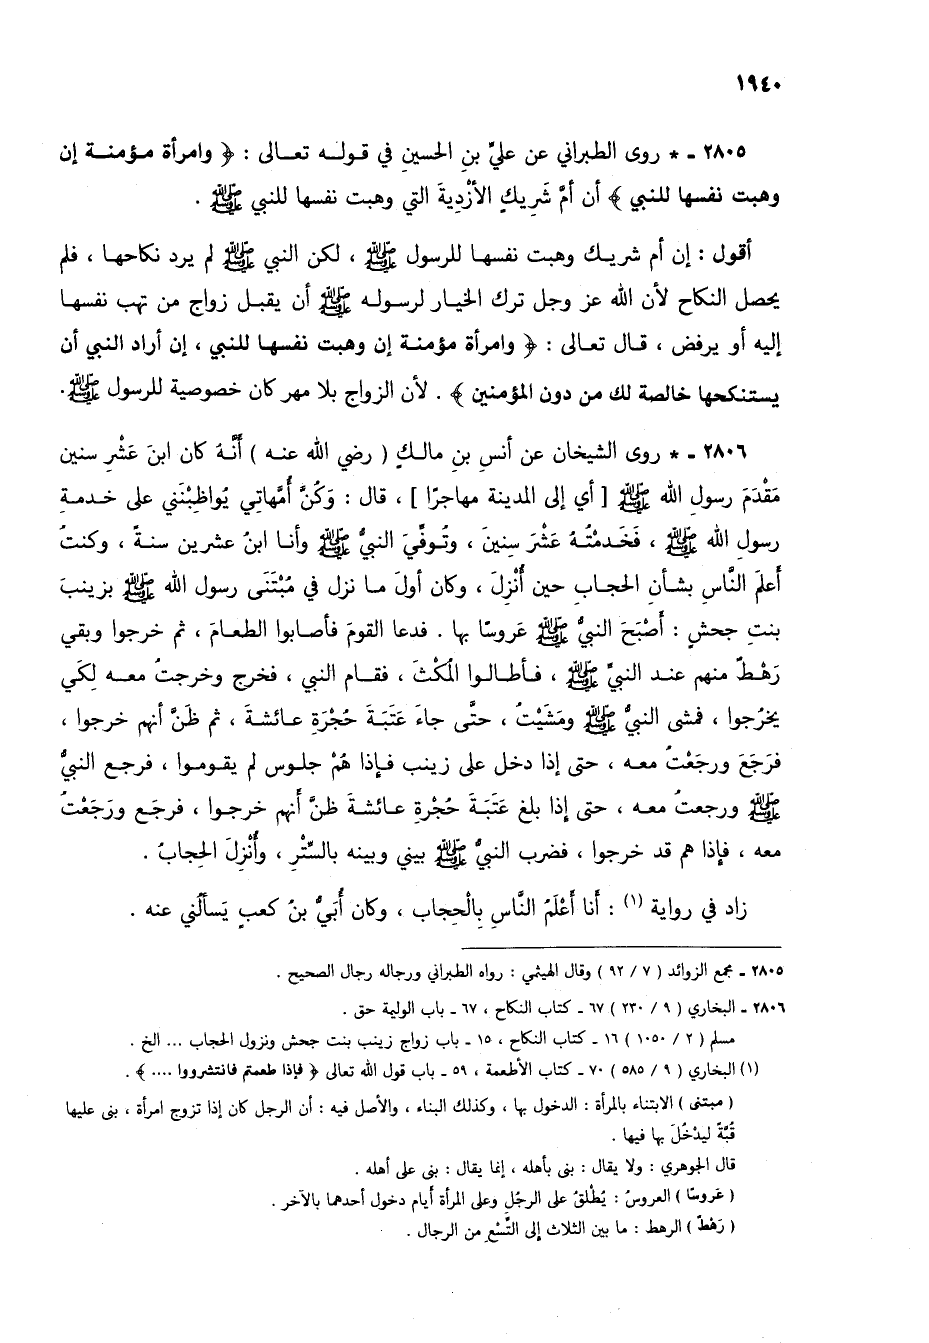 ١٩٤٠
٢٨٠٥ ـ * روى الطبراني عن عليِّ بنِ الحسينِ في قوله تعالى : ﴿ وامرأة مؤمنة إن
وهبت نفسها للنبي ﴾ أن أمَّ شَريكٍ الأزْدِيةَ التي وهبت نفسها للنبي ﷺ .
أقول : إن أم شريك وهبت نفسها للرسول ﷺ ، لكن النبي ﷺ لم يرد نكاحها ، فلم
يحصل النكاح لأن الله عز وجل ترك الخيار لرسوله ﷺ أن يقبل زواج من تهب نفسها
إليه أو يرفض ، قال تعالى : ﴿ وامرأة مؤمنة إن وهبت نفسها للنبي ، إن أراد النبي أن
يستنكحها خالصة لك من دون المؤمنين ﴾ . لأن الزواج بلا مهر كان خصوصية للرسول ﷺ.
٢٨٠٦ ـ * روى الشيخان عن أنسِ بنِ مالكٍ ( رضي الله عنه ) أنَّهُ كان ابنَ عَشْرِ سنين
مَقْدَمَ رسولِ الله ﷺ [ أي إلى المدينة مهاجرًا ] ، قال : وَكُنَّ أُمَّهاتي يُواظِبْنَني على خدمةِ
رسولِ الله ﷺ ، فَخَدمْتُهُ عَشْرَ سِنِينَ ، وتُوفِّيَ النبيُّ ﷺ وأنا ابنُ عشرين سنةً ، وكنتُ
أعلمَ النَّاسِ بشأنِ الحجابِ حين أُنْزِلَ ، وكان أولَ ما نزل في مُبْتَنَى رسول الله ﷺ بزينبَ
بنتِ جحشٍ : أَصْبَحَ النبيُّ ﷺ عَروسًا بها . فدعا القومَ فأصابوا الطعامَ ، ثم خرجوا وبقي
رَهْطٌ منهم عند النبيِّ ﷺ ، فأطالوا المُكْثَ ، فقام النبي ، فخرج وخرجتُ معه لِكَي
يخرُجوا ، فمشى النبيُّ ﷺ ومَشَيْتُ ، حتَّى جاءَ عَتَبَةَ حُجْرَةِ عائشةَ ، ثم ظَنَّ أنهم خرجوا ،
فرَجَعَ ورجَعْتُ معه ، حتى إذا دخل على زينب فإذا هُمْ جلوس لم يقوموا ، فرجع النبيُّ
ﷺ ورجعتُ معه ، حتى إذا بلغ عَتَبَةَ حُجْرةِ عائشةَ ظنَّ أنهم خرجوا ، فرجَع ورَجَعْتُ
معه ، فإذا هم قد خرجوا ، فضرب النبيُّ ﷺ بيني وبينه بالسِّتْرِ ، وأُنْزِلَ الحجابُ .
زاد في رواية (١) : أنا أَعْلَمُ النَّاسِ بِالْحِجابِ ، وكان أُبَيُّ بنُ كعبٍ يَسألُني عنه .
٢٨٠٥ ـ مجمع الزوائد ( ٧ / ٩٢ ) وقال الهيثمي : رواه الطبراني ورجاله رجال الصحيح .
٢٨٠٦ ـ البخاري ( ٩ / ٢٣٠ ) ٦٧ ـ كتاب النكاح ، ٦٧ ـ باب الوليمة حق .
مسلم ( ٢ / ١٠٥٠ ) ١٦ ـ كتاب النكاح ، ١٥ ـ باب زواج زينب بنت جحش ونزول الحجاب ... الخ .
(١) البخاري ( ٩ / ٥٨٥ ) ٧٠ ـ كتاب الأطعمة ، ٥٩ ـ باب قول الله تعالى ﴿ فإذا طعمتم فانتشروا .... ﴾ .
( مبتنى ) الابتناء بالمرأة : الدخول بها ، وكذلك البناء ، والأصل فيه : أن الرجل كان إذا تزوج امرأة ، بنى عليها
قُبَّةً ليدْخُلَ بها فيها .
قال الجوهري : ولا يقال : بنى بأهله ، إنما يقال : بنى على أهله .
( عَروسًا ) العروسُ : يُطْلقُ على الرجُلِ وعلى المرأة أيام دخول أحدهما بالآخر .
( رَهْطٌ ) الرهط : ما بين الثلاث إلى التِّسْعِ من الرجال .